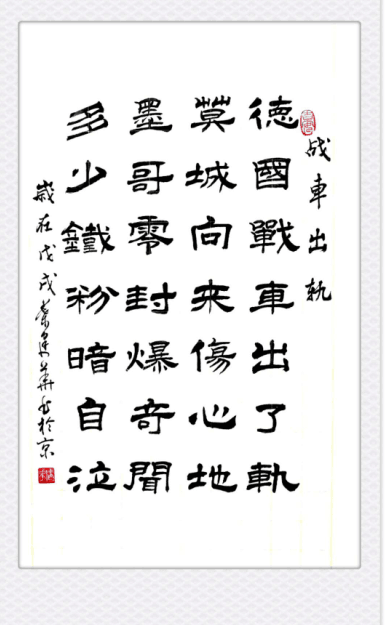 战車出軌
德國戰車出了軌
莫城向来傷心地
墨哥零封爆奇聞
多少鐵粉暗自泣
歲在戊戌秦建華书於京